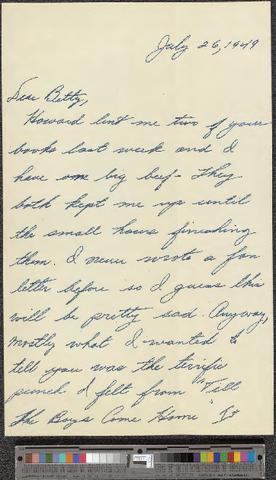 July 26, 1949
Dear Betty,
Howard lent me two of your
books last week and I
have one big beef - they
both kept me up until
the small hours finishing
them. I never wrote a fan
letter before so I guess this
will be pretty sad. Anyway,
mostly what I wanted to
tell you was the terrific
punch I felt from "Till
the Boys Come Home". It